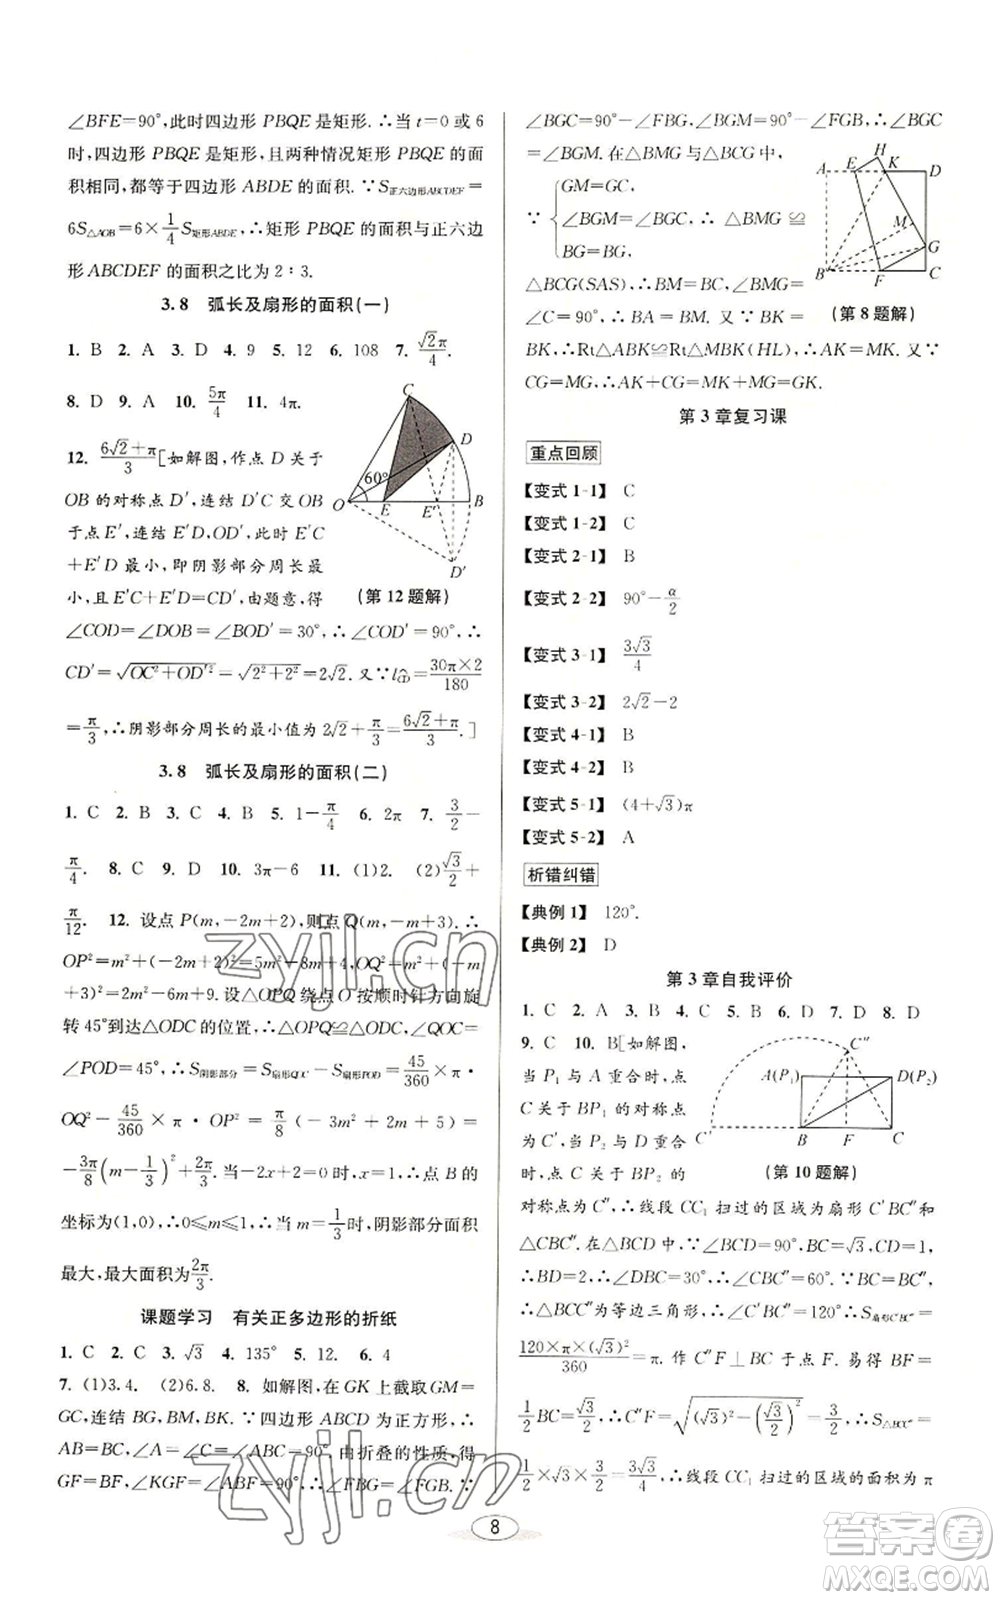 ∠BFE=90°,此时四边形 PBQE 是矩形.∴当 t=0 或 6
时,四边形 PBQE 是矩形,且两种情况矩形 PBQE 的
面积相同,都等于四边形 ABDE 的面积.∵S正六边形ABCDEF=
6S△AOB=6×1/4 S矩形ABDE,∴矩形 PBQE 的面积与正六边
形 ABCDEF 的面积之比为 2∶3.
3.8 弧长及扇形的面积(一)
1. B 2. A 3. D 4. 9 5. 12 6. 108 7. √2π/4.
8. D 9. A 10. 5π/4 11. 4π.
12. (6√2+π)/3[如解图,作点 D 关于
OB 的对称点 D′,连结 D′C 交 OB
于点 E′,连结 E′D,OD′,此时 E′C
+E′D 最小,即阴影部分周长的最
小,且 E′C+E′D=CD′.由题意,得
C
D
60°
O E E′ B
D′
(第 12 题解)
∠COD=∠DOB=∠BOD′=30°,∴∠COD′=90°,∴
CD′=√(OC²+OD′²)=√(2²+2²)=2√2.又∵l⌒CD=(30π×2)/180
=π/3,∴阴影部分周长的最小值为 2√2+π/3=(6√2+π)/3.]
3.8 弧长及扇形的面积(二)
1. C 2. B 3. C 4. B 5. 1-π/4 6. 2π 7. 3/2-
π/4. 8. C 9. D 10. 3π-6 11. (1)2. (2)√3/2+
π/12. 12. 设点 P(m,-2m+2),则点 Q(m,-2m+3).∴
OP²=m²+(-2m+2)²=5m²-8m+4,OQ²=m²+(-2m+
3)²=5m²-12m+9.设△OPQ 绕点 O 按顺时针方向旋
转 45°到达△ODC 的位置,∴△OPQ≌△ODC,∴∠QOC=
∠POD=45°,∴S阴影部分=S扇形QOC-S扇形POD=45/360×π·
OQ²-45/360×π·OP²=π/8(5m²-12m+9-5m²+8m-4)=
-3π/8(m-1/3)²+2π/3.∵-2x+2=0时,x=1,∴点 B 的
坐标为(1,0),∴0≤m≤1,∴当 m=1/3时,阴影部分面积
最大,最大面积为2π/3.
课题学习 有关正多边形的折纸
1. C 2. C 3. √3 4. 135° 5. 12. 6. 4
7. (1)3.4. (2)6.8. 8. 如解图,在 GK 上截取 GM=
GC,连结 BG,BM,BK.∵四边形 ABCD 为正方形,∴
AB=BC,∠A=∠C=∠ABC=90°.由折叠的性质,得
GF=BF,∠KGF=∠ABF=90°,∴∠FBG=∠FGB.∵
∠BGC=90°-∠FBG,∠BGM=90°-∠FGB,∴∠BGC
=∠BGM.在△BMG 与△BCG 中,
∵{GM=GC,
∠BGM=∠BGC,∴△BMG≌
BG=BG,
△BCG(SAS),∴BM=BC,∠BMG=
∠C=90°,∴BA=BM.又∵BK=
A E H K D
M
G
B F C
(第 8 题解)
BK,∴Rt△ABK≌Rt△MBK(HL),∴AK=MK.又∵
CG=MG,∴AK+CG=MK+MG=GK.
第 3 章复习课
重点回顾
【变式 1-1】 C
【变式 1-2】 C
【变式 2-1】 B
【变式 2-2】 90°-α/2
【变式 3-1】 3√3/4
【变式 3-2】 2√2-2
【变式 4-1】 B
【变式 4-2】 B
【变式 5-1】 (4+√3)π
【变式 5-2】 A
析错纠错
【典例 1】 120°.
【典例 2】 D
第 3 章自我评价
1. C 2. A 3. B 4. C 5. B 6. D 7. D 8. D
9. C 10. B[如解图,
当 P₁ 与 A 重合时,点
C 关于 BP₁ 的对称点
为 C′,当 P₂ 与 D 重合
时,点 C 关于 BP₂ 的
C″
A(P₁) D(P₂)
C′ B F C
(第 10 题解)
对称点为 C″,∴线段 CC₁ 扫过的区域为扇形 C′BC″和
△CBC″.在△DBC 中,∵∠BCD=90°,BC=√3,CD=1,
∴BD=2,∴∠DBC=30°,∴∠CBC″=60°.∵BC=BC″,
∴△BCC″为等边三角形,∴∠C′BC″=120°∴S扇形C′BC″=
(120×π×(√3)²)/360=π.作 C″F⊥BC 于点 F.易得 BF=
1/2 BC=√3/2,∴C″F=√((√3)²-(√3/2)²)=3/2,∴S△BCC″=
1/2×√3×3/2=3√3/4,∴线段 CC₁ 扫过的区域的面积为 π
8
zyjl.cn
zyjl.cn
答案圈
MXQE.COM